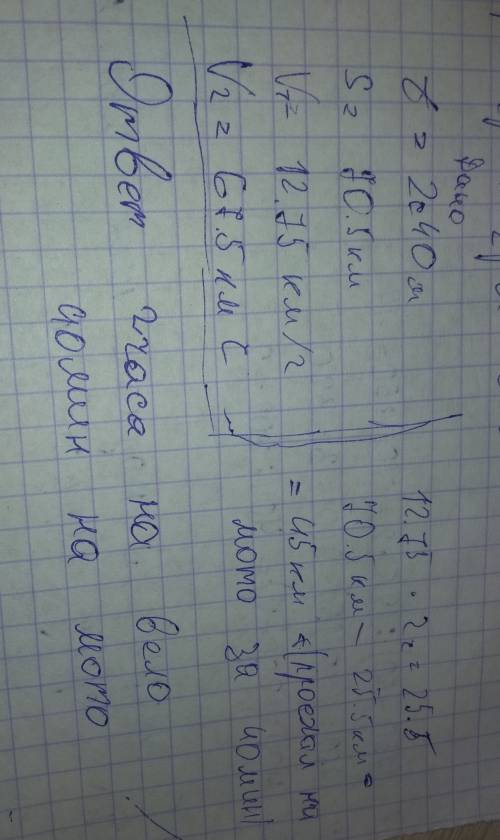 Дано
t = 2ч40м
S = 70.5 км
V1 = 12.75 км/ч
V2 = 67.5 км (
12.75 · 2ч = 25.5
70.5 км - 25.5 км =
= 45 км (проехал на
мото за 40мин)
Ответ 2часа на вело
40мин на мото